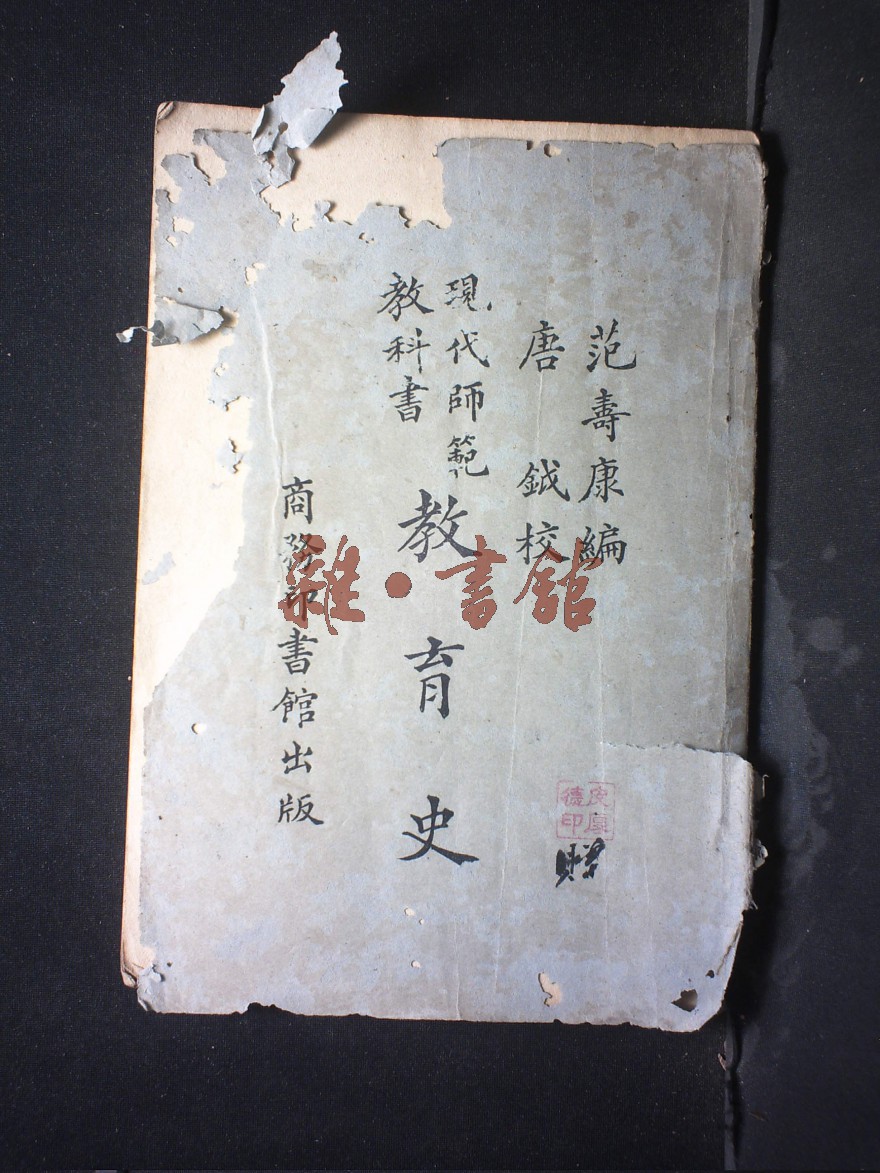 范壽康編
唐鉞校
現代師範
教科書
教育史
商務印書館出版
德印
贈
雜·書館